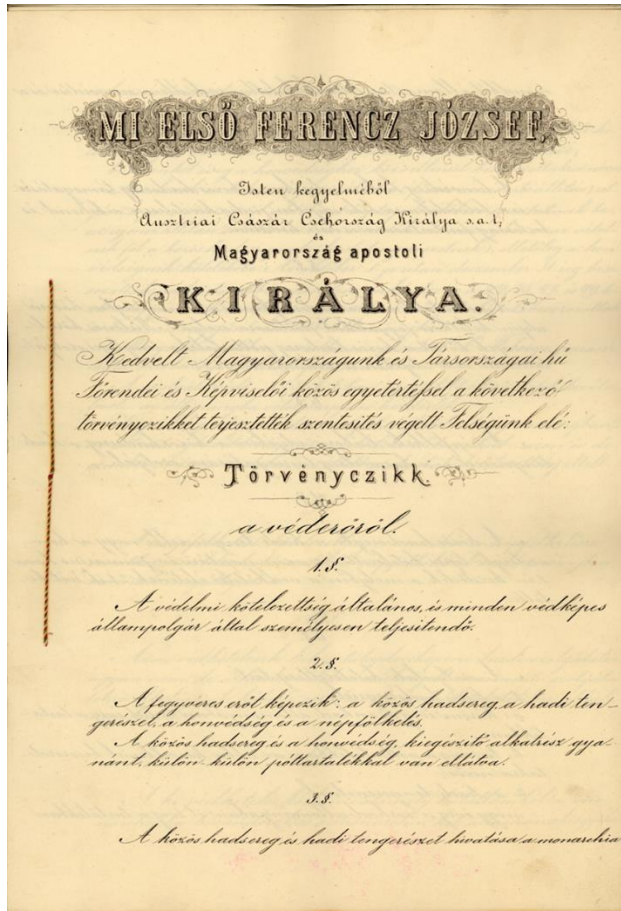 MI ELSŐ FERENCZ JÓZSEF,
Isten kegyelméből
Ausztriai Császár Csehország Királya s.a.t,
és
Magyarország apostoli
KIRÁLYA.
Kedvelt Magyarországunk és Társországai hű
Főrendei és Képviselői közös egyetértéssel a következő
törvényczikket terjesztették szentesítés végett Felségünk elé:
Törvényczikk.
a véderőről.
1. §.
A védelmi kötelezettség általános, és minden védképes
állampolgár által személyesen teljesítendő.
2. §.
A fegyveres erőt képezik: a közös hadsereg, a hadi ten-
gerészet, a honvédség és a népfölkelés.
A közös hadsereg és a honvédség, kiegészítő alkatrész gya-
nánt, külön külön póttartalékkal van ellátva.
3. §.
A közös hadsereg és hadi tengerészet hivatása a monarchia